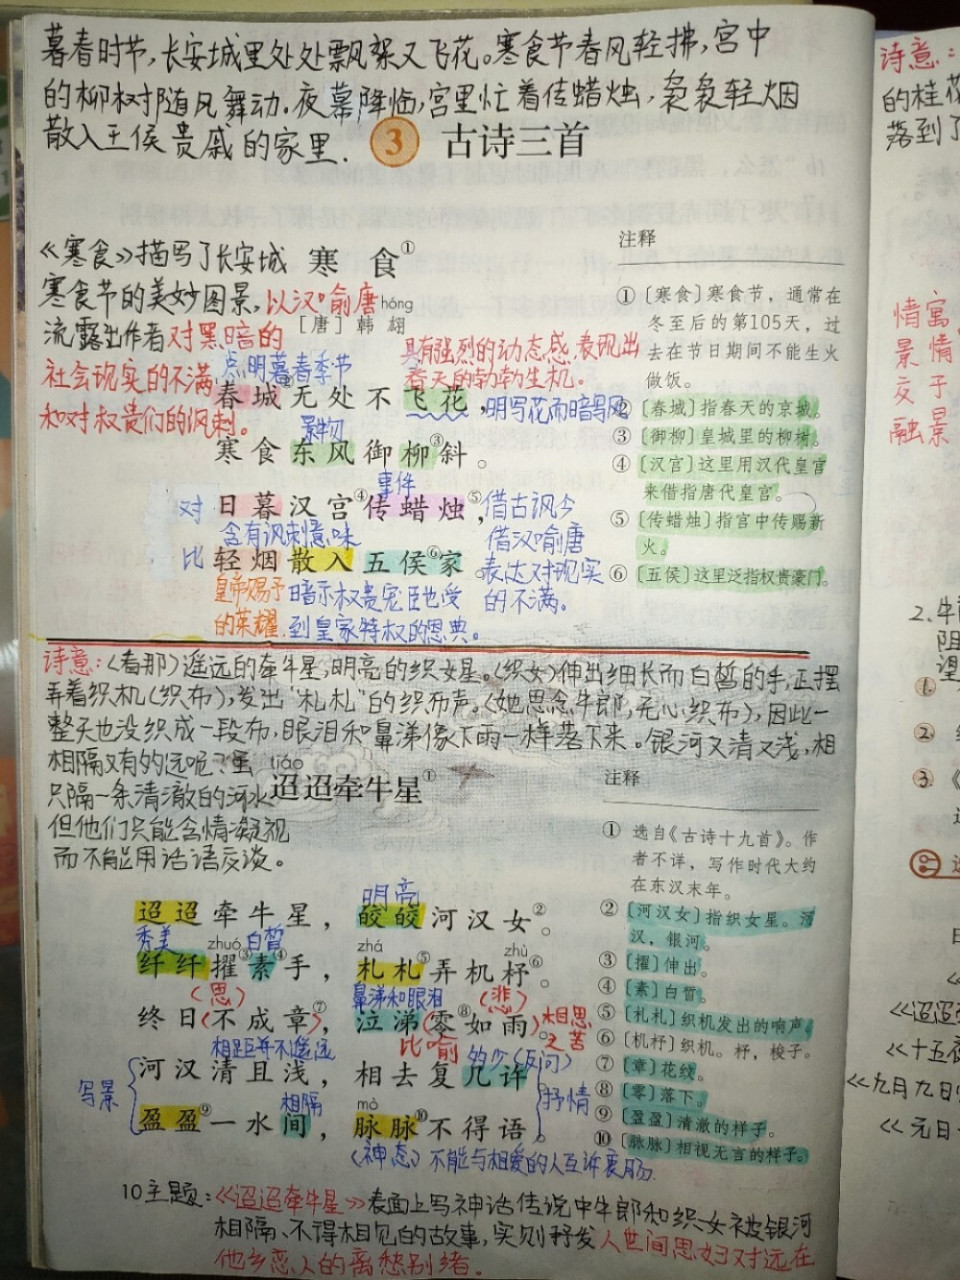 暮春时节,长安城里处处飘絮又飞花。寒食节春风轻拂,宫中
的柳树随风舞动.夜幕降临,宫里忙着传蜡烛,袅袅轻烟
散入王侯贵戚的家里.
3 古诗三首
《寒食》描写了长安城
寒食节的美妙图景,以汉喻唐
流露出作者对黑暗的
社会现实的不满
和对权贵们的讽刺。
寒食①
hóng
[唐] 韩翃
点明暮春季节
具有强烈的动态感,表现出
春天的勃勃生机。
春城②无处不飞花,明写花而暗写风
景物
寒食东风御柳③斜。
事件
对 日暮汉宫④传蜡烛⑤,借古讽今
含有讽刺意味 借汉喻唐
比 轻烟散入五侯⑥家。表达对现实
的不满。
皇帝赐予
的荣耀.
暗示权贵宠臣也受
到皇家特权的恩典。
注释
①〔寒食〕寒食节,通常在
冬至后的第105天,过
去在节日期间不能生火
做饭。
②〔春城〕指春天的京城。
③〔御柳〕皇城里的柳树。
④〔汉宫〕这里用汉代皇宫
来借指唐代皇宫。
⑤〔传蜡烛〕指宫中传赐新
火。
⑥〔五侯〕这里泛指权贵豪门。
诗意:(看那)遥远的牵牛星,明亮的织女星。(织女)伸出细长而白皙的手,正摆
弄着织机(织布),发出“札札”的织布声。(她思念牛郎,无心织布),因此一
整天也没织成一段布,眼泪和鼻涕像下雨一样落下来。银河又清又浅,相
相隔又有多远呢?虽
只隔一条清澈的河水
但他们只能含情凝视
而不能用话语交谈。
tiáo
迢迢牵牛星①
明亮
迢迢牵牛星,皎皎河汉女②。
秀美 zhuó 白皙 zhá zhù
纤纤擢③素④手,札札⑤弄机杼⑥。
(思) 鼻涕和眼泪 (悲)
终日(不成章)⑦,泣涕(零⑧如雨)。相思
之苦
相距并不遥远 比喻 多少(反问)
河汉清且浅,相去复几许
写景 抒情
相隔 mò
盈盈⑨一水间,脉脉⑩不得语。
(神态)不能与相爱的人互诉衷肠.
注释
① 选自《古诗十九首》。作
者不详,写作时代大约
在东汉末年。
②〔河汉女〕指织女星。河
汉,银河。
③〔擢〕伸出。
④〔素〕白皙。
⑤〔札札〕织机发出的响声。
⑥〔机杼〕织机。杼,梭子。
⑦〔章〕花纹。
⑧〔零〕落下。
⑨〔盈盈〕清澈的样子。
⑩〔脉脉〕相视无言的样子。
10主题:《迢迢牵牛星》表面上写神话传说中牛郎和织女被银河
相隔、不得相见的故事,实则抒发人世间思妇对远在
他乡恋人的离愁别绪.
诗意:
的桂花
落到了
情寓
景情
交于
融景
2.牛
阻
望
①.
②.
③.《
《迢迢
《十五夜
《九月九日
《元日